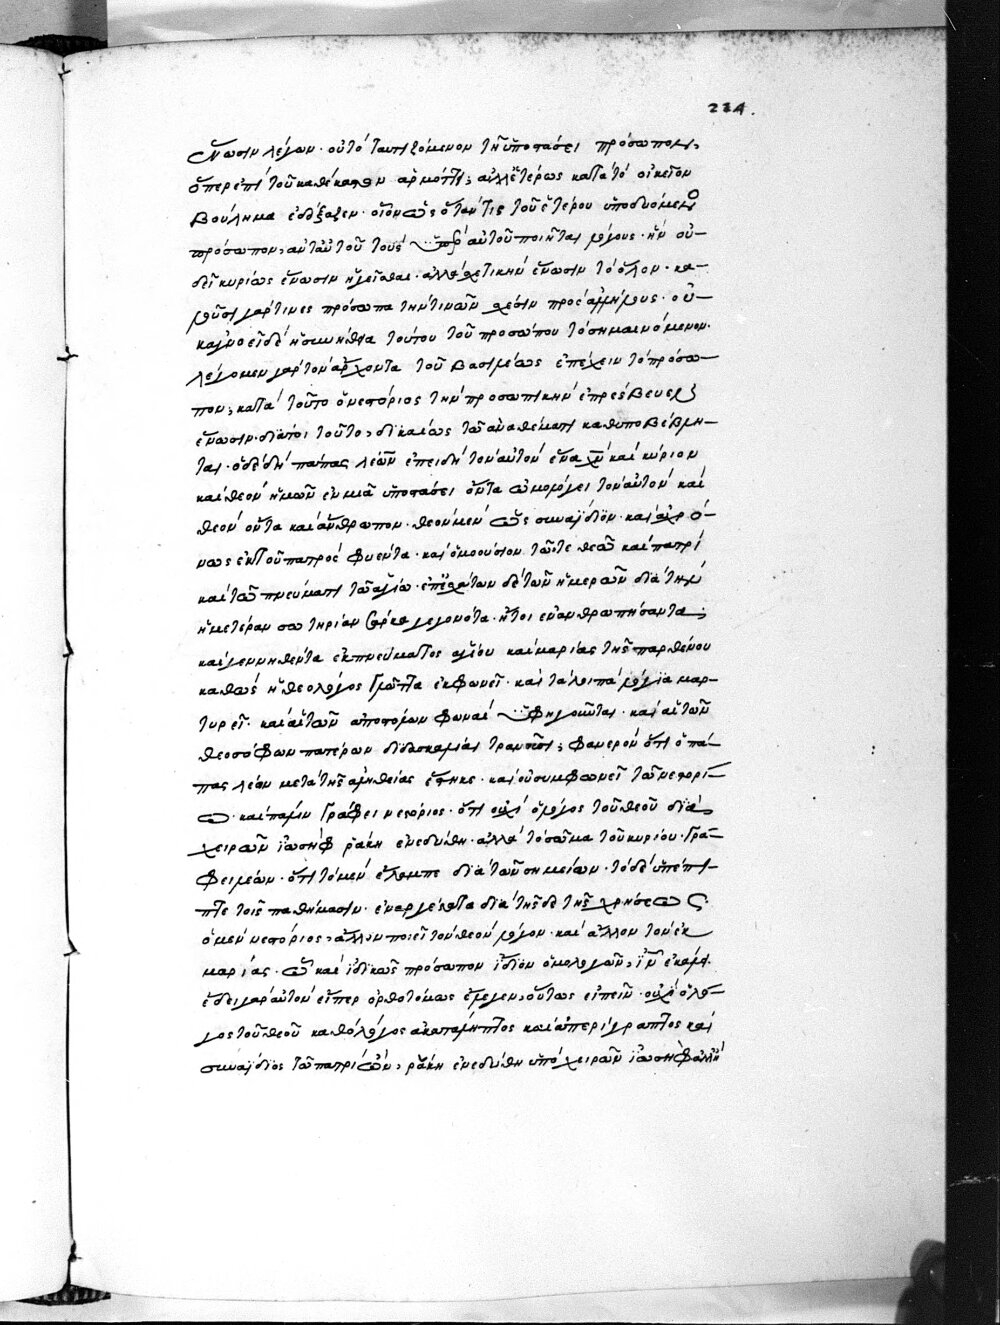 224.
ἕνωσιν λέγων· οὐ τὸ ταυτιζόμενον τῇ ὑποστάσει πρόσωπον,
ὅπερ ἐπὶ τοῦ καθ' ἕκαστον ἁρμόττει, ἀλλ' ἑτέρως κατὰ τὸ οἰκεῖον
βούλημα ἐδόξαζεν· οἷον ὡς ὅταν τις τοῦ ἑτέρου ὑποδυόμενος
πρόσωπον, ἀντ' αὐτοῦ τοὺς ὑπὲρ αὐτοῦ ποιῆται λόγους· ἣν οὐ-
δεὶ κυρίως ἕνωσιν ἡγεῖσθαι· ἀλλὰ σχετικὴν ἕνωσιν τὸ ὅλον· κα-
λοῦσι γάρ τινες πρόσωπα τὴν τινῶν σχέσιν πρὸς ἀλλήλους· οὐ-
κ ἀγνοεῖ δὲ ἡ συνήθεια τούτου τοῦ προσώπου τὸ σημαινόμενον·
λέγομεν γὰρ τὸν ἄρχοντα τοῦ βασιλέως ἐπέχειν τὸ πρόσω-
πον, κατὰ τοῦτο ὁ νεστόριος τὴν προσωπικὴν ἐπρέσβευεν
ἕνωσιν· διάτοι τοῦτο, δικαίως τῶ ἀναθέματι καθυποβέβλη-
ται· ὁ δὲ δὴ πάπας λέων ἐπειδὴ τὸν αὐτὸν ἕνα χν καὶ κύριον
καὶ θεὸν ἡμῶν ἐν μιᾶ ὑποστάσει ὄντα ὡμολόγει τὸν αὐτὸν καὶ
θεὸν ὄντα καὶ ἄνθρωπον· θεὸν μὲν ὡς συναΐδιον· καὶ ἀχρό-
νως ἐκ τοῦ πατρὸς φύεντα· καὶ ὁμοούσιον τῶ τε θεῶ καὶ πατρὶ
καὶ τῶ πνεύματι τῶ ἁγίω· ἐπ' ἐσχάτων δὲ τῶν ἡμερῶν διὰ τὴν
ἡμετέραν σωτηρίαν σάρκα γεγονότα· ἤτοι ἐνανθρωπήσαντα,
καὶ γεννηθέντα ἐκ πνεύματος ἁγίου καὶ μαρίας τῆς παρθένου
καθὼς ἡ θεολόγος γλῶττα ἐκφωνεῖ· καὶ τὰ λοιπὰ λόγια μαρ-
τυρεῖ· καὶ αἱ τῶν ἀποστόλων φωναὶ ὑφηγοῦνται· καὶ αἱ τῶν
θεοσόφων πατέρων διδασκαλίαι τρανοῦσι, φανερὸν ὅτι ὁ πά-
πας λέων μετὰ τῆς ἀληθείας ἕστηκε· καὶ οὐ συμφωνεῖ τῶ νεστορί-
ω· καὶ πάλιν γράφει νεστόριος· ὅτι οὐχὶ ὁ λόγος τοῦ θεοῦ διὰ
χειρῶν ἰωσὴφ ῥάκη ἐνεδύθη· ἀλλὰ τὸ σῶμα τοῦ κυρίου· γρά-
φει λέων· ὅτι τὸ μὲν ἔλαμπε διὰ τῶν σημείων· τὸ δὲ ὑπέπι-
πτε τοῖς παθήμασιν· ἐναργέστατα διὰ τῆσδε τῆς χρήσεως
ὁ μὲν νεστόριος, ἄλλον ποιεῖ τὸν θεὸν λόγον· καὶ ἄλλον τὸν ἐκ
μαρίας· ὧ καὶ ἰδικῶς πρόσωπον ἴδιον ὁμολογῶν,
ἔδει γὰρ αὐτὸν εἴπερ ὀρθοτόμως ἔλεγεν, οὕτως εἰπεῖν· οὐχὶ ὁ λό-
γος τοῦ θεοῦ καθὸ λόγος ἀκατάληπτος καὶ ἀπερίγραπτος καὶ
συναΐδιος τῶ πατρὶ ὤν, ῥάκη ἐνεδύθη ὑπὸ χειρῶν ἰωσὴφ ἀλλ' ἡ